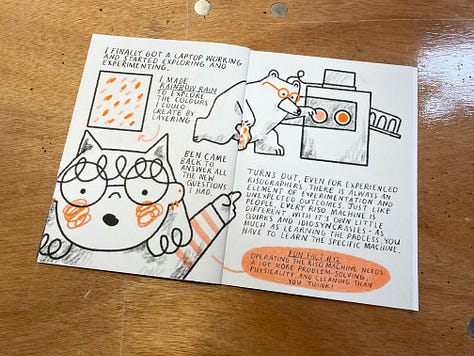 I FINALLY GOT A LAPTOP WORKING
AND STARTED EXPLORING AND
EXPERIMENTING.
I MADE
RAINBOW RAIN
TO EXPLORE
THE COLOURS
I COULD
CREATE BY
LAYERING
BEN CAME
BACK TO
ANSWER ALL
THE NEW
QUESTIONS
I HAD.
TURNS OUT, EVEN FOR EXPERIENCED
RISOGRAPHERS, THERE IS ALWAYS AN
ELEMENT OF EXPERIMENTATION AND
UNEXPECTED OUTCOMES. JUST LIKE
PEOPLE, EVERY RISO MACHINE IS
DIFFERENT, WITH IT'S OWN LITTLE
QUIRKS AND IDIOSYNCRASIES - AS
MUCH AS LEARNING THE PROCESS, YOU
HAVE TO LEARN THE SPECIFIC MACHINE.
FUN FACT #12
OPERATING THE RISO MACHINE NEEDS
A LOT MORE PROBLEM-SOLVING,
PHYSICALITY, AND CLEANING THAN
YOU THINK!